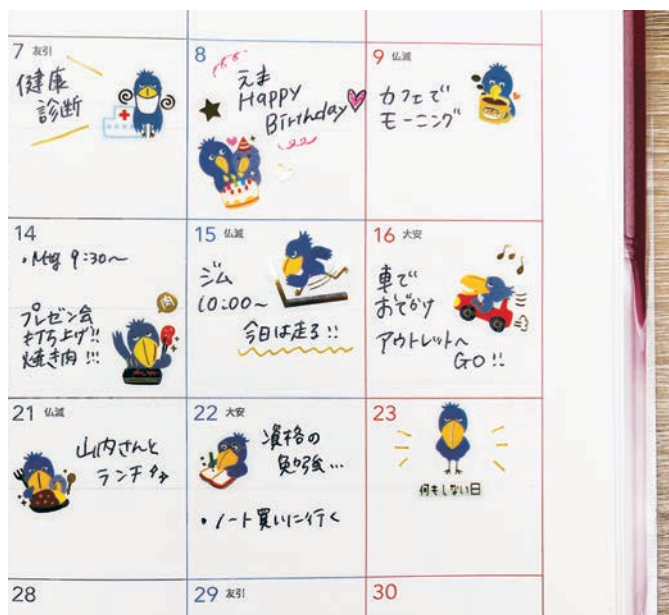 7 友引
健康
診断
8
えま
Happy
Birthday
9 仏滅
カフェで
モーニング
14
・Mtg 9:30〜
プレゼン会
打ち上げ!!
焼き肉!!!
肉
15 仏滅
ジム
10:00〜
今日は走る!!
16 大安
車で
おでかけ
アウトレットへ
GO!!
21 仏滅
山内さんと
ランチ
22 大安
資格の
勉強…
・ノート買いに行く
23
何もしない日
28
29 友引
30